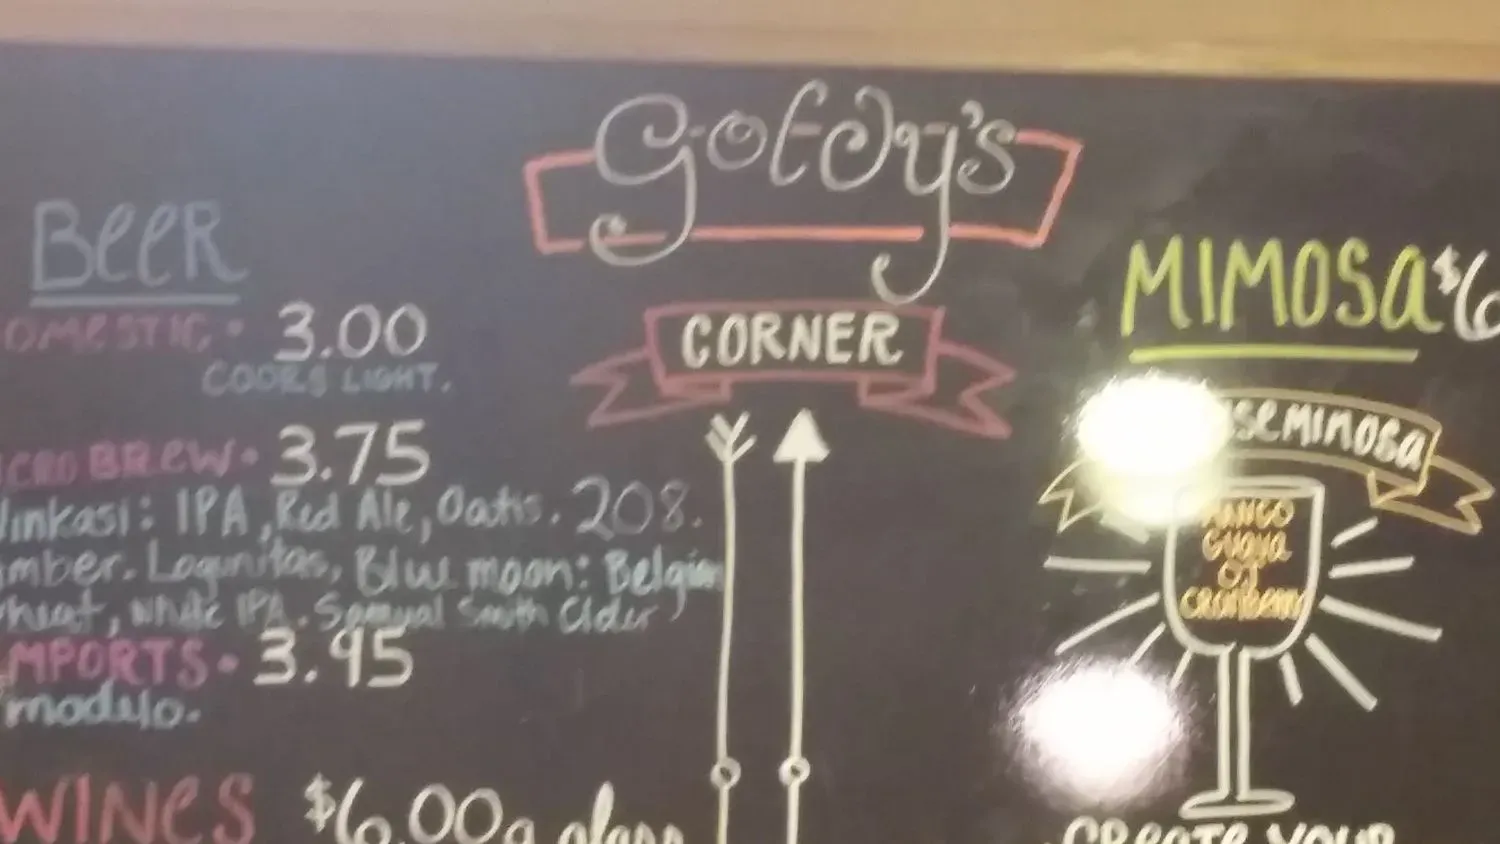 Goldy's
CORNER
BEER
OMESTIC. 3.00
COORS LIGHT.
CRO BREW. 3.75
inkasi: IPA, Red Ale, Oatis. 208.
mber. Lagunitas, Blue moon: Belgian
heat, white IPA. Samual Smith Cider
IMPORTS. 3.95
modelo.
WINES $6.00 a glass
MIMOSA $6
SE MIMOSA
MANGO
GUAVA
or
CRANBERRY
CREATE YOUR